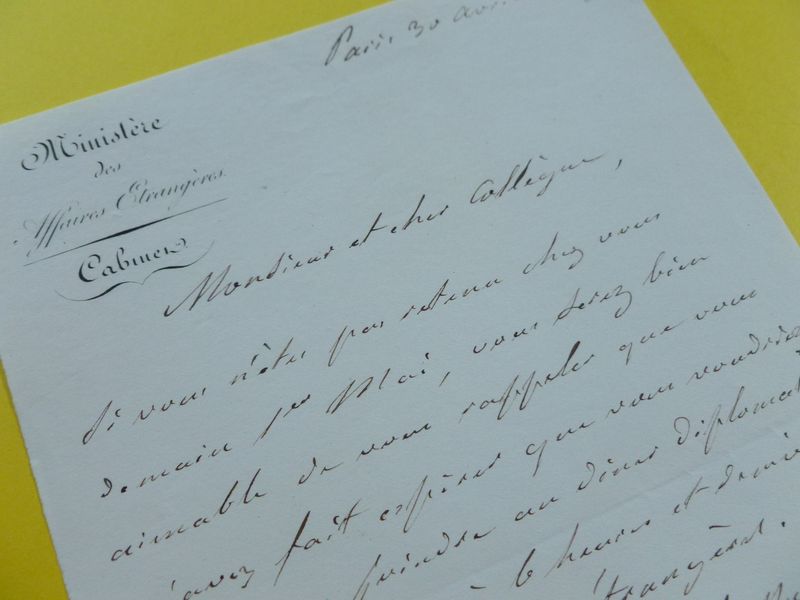 Paris 30 avri
Ministère
des
Affaires Etrangères.
Cabinet
Monsieur et cher Collègue,
Si vous n'êtes pas retenu chez vous
demain 1er Mai, vous serez bien
aimable de vous rappeler que vous
avez fait espérer que vous voudriez
joindre au dîner diplomat
à 6 heures et demie
étrangères.